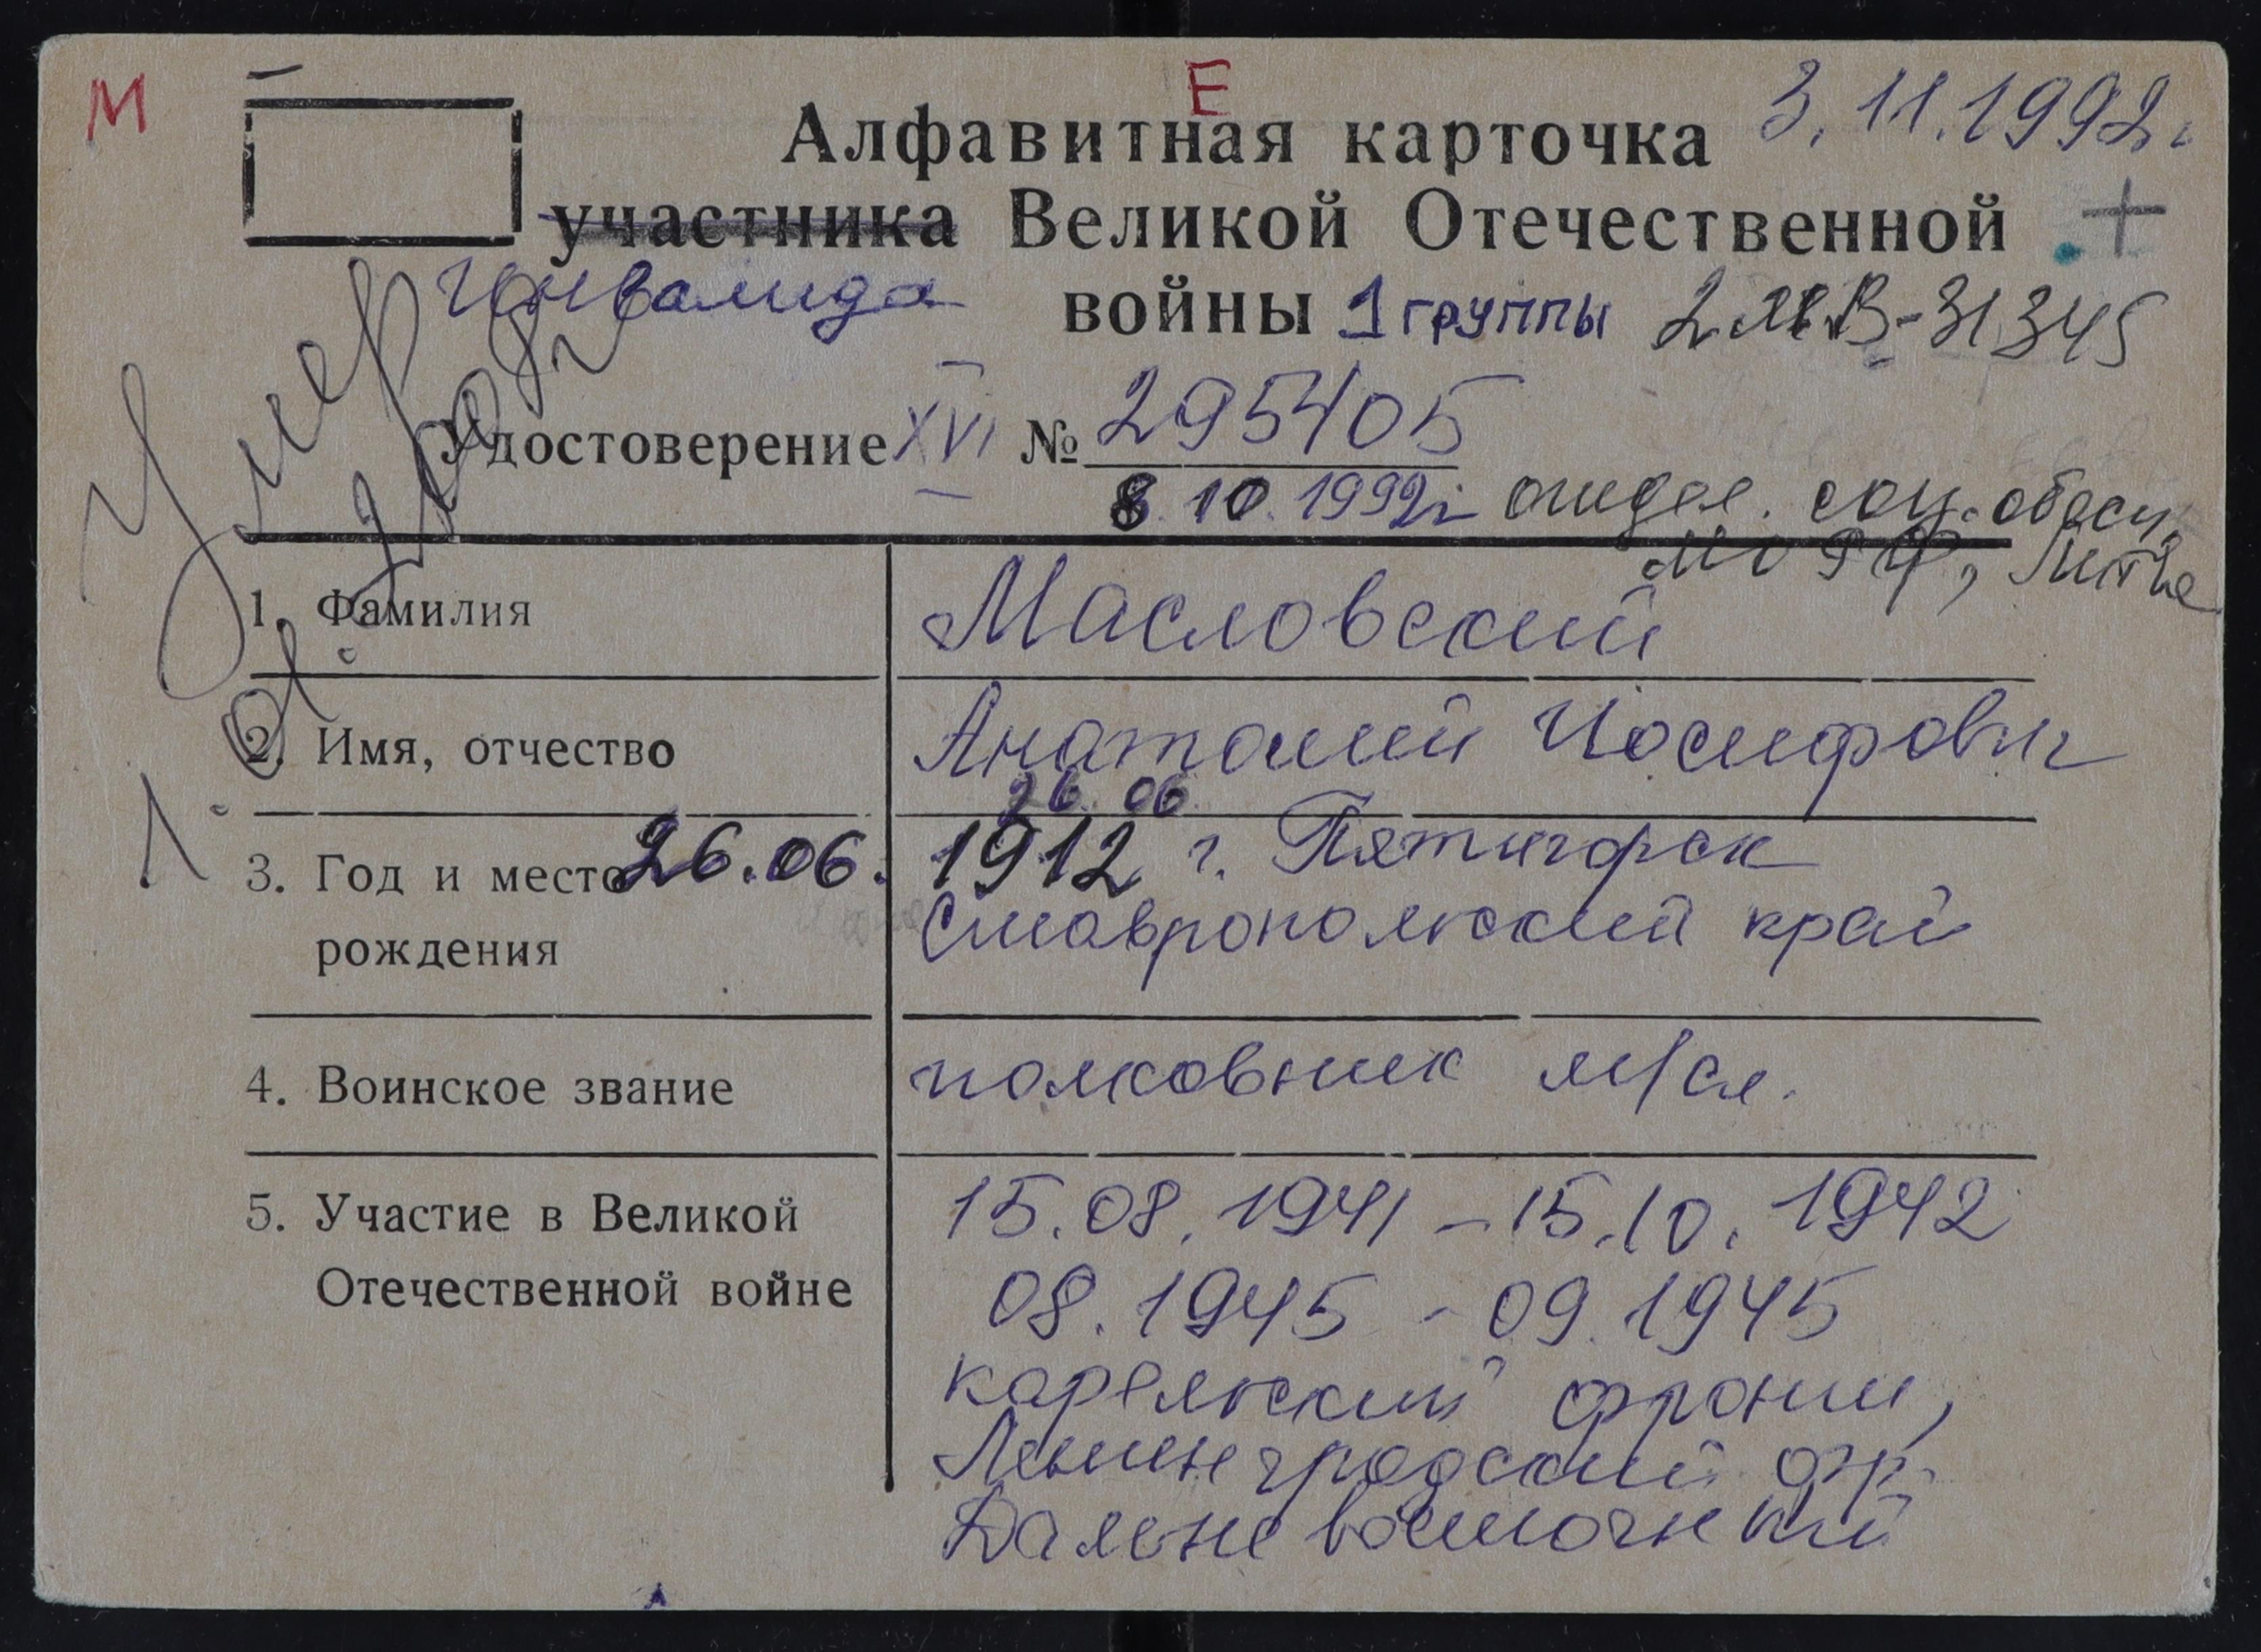 М
Е
Алфавитная карточка 3.11.1992г
участника Великой Отечественной +
Инвалида войны 1 группы 2 МВ-31345
Удостоверение XVI № 295405
8.10.1992г отдел. соц. обесп.
МО РФ, Литве
Умер
1. 01. 2002г
1. Фамилия Масловский
2. Имя, отчество Анатолий Иосифович
26.06
3. Год и место 26.06. 1912 г. Пятигорск
рождения Ставропольский край
4. Воинское звание полковник м/сл.
5. Участие в Великой 15.08.1941 – 15.10.1942
Отечественной войне 08.1945 - 09.1945
карельский фронт,
Ленинградский фр
Дальневосточный